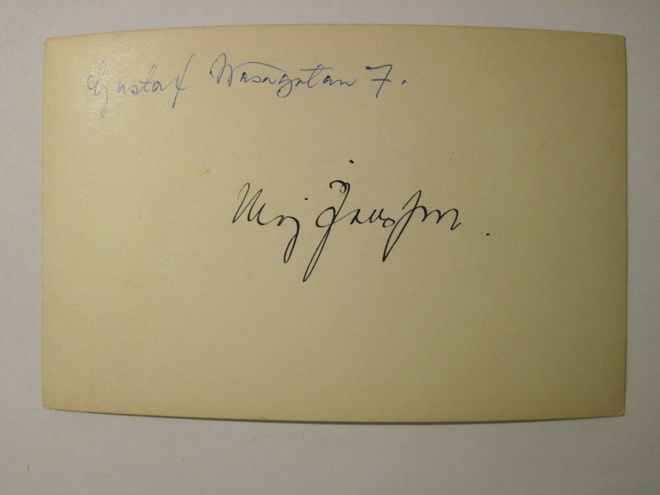 Gustaf Wasagatan 7.
Maj Jansson.